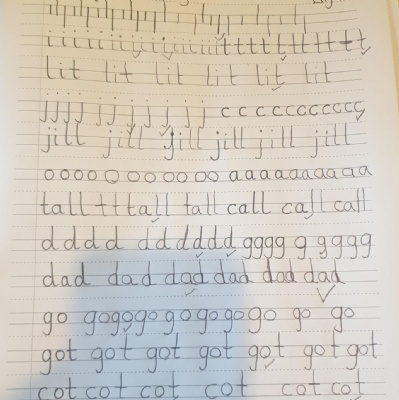 iiiiiiiiijiiiiiitttttttttt
lit lit lit lit lit lit
jjjj jjjjjj cccccccccccc
jill jill jill jill jill jill
ooooooooooo aaaaaaaaaa
tall tttall tall call call call
dddd dddddd gggg g gggg
dad dad dad dad dad dad
go gogogo go go go go go go
got got got got got got got
cot cot cot cot cot cot